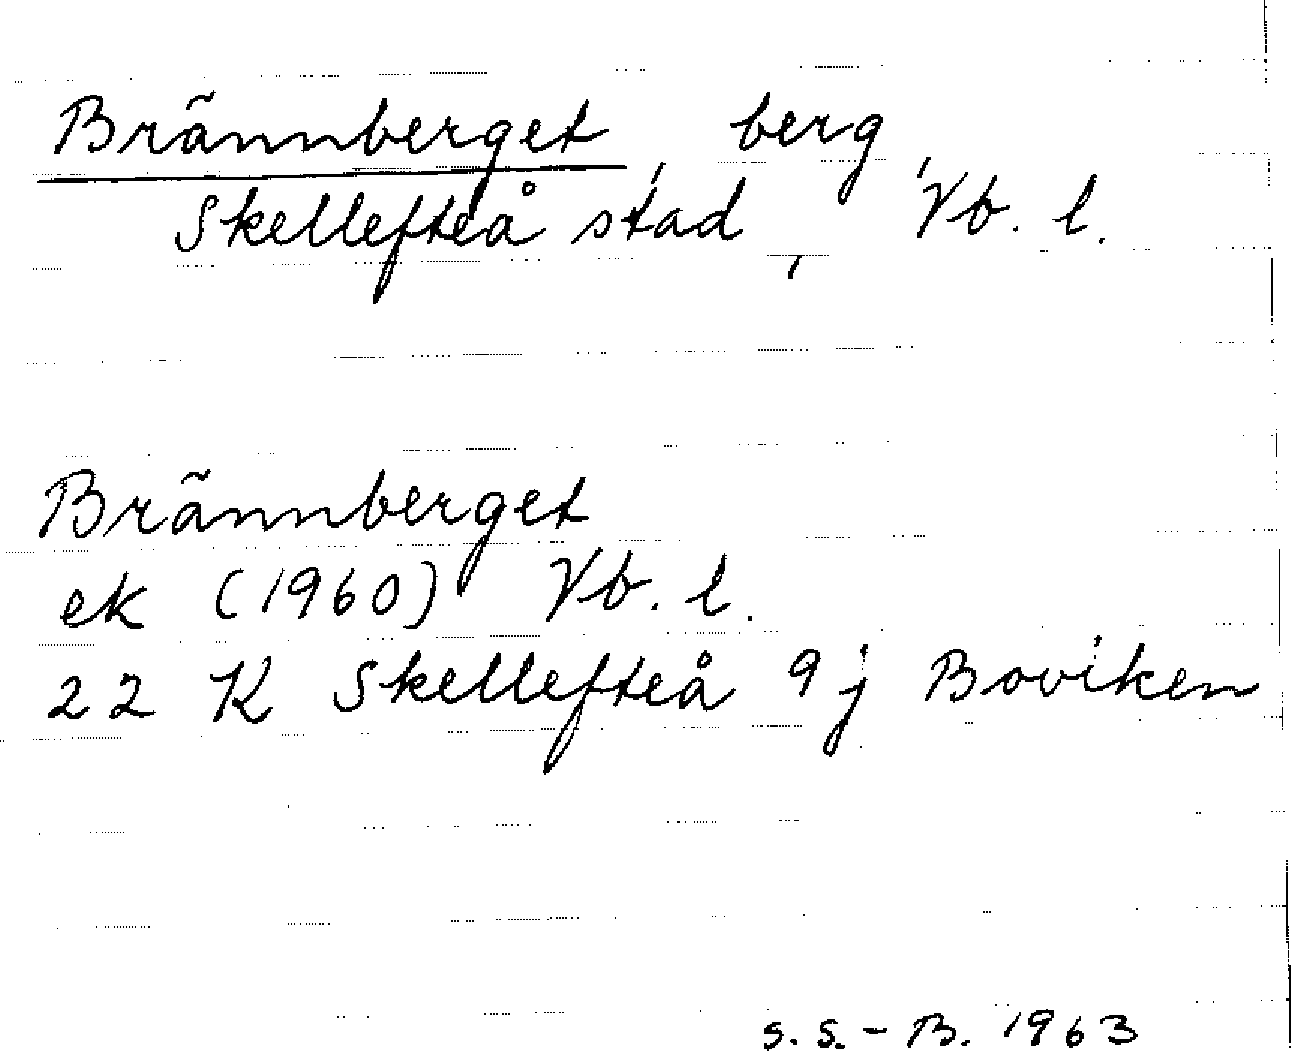 Brännberget, berg,
Skellefteå stad, Vb. l.
Brännberget
ek (1960) Vb. l.
22 K Skellefteå 9j Boviken
S.S.-B. 1963